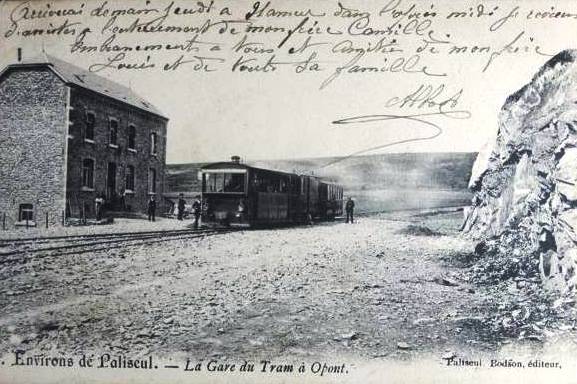 Arriverai demain jeudi à Hamur dans l'après midi je reviens
d'assister à l'enterrement de mon frère Camille
Embrassements à vous et amitiés de mon frère
Louis et de toute sa famille
Abbot
Environs de Paliseul. — La Gare du Tram à Opont.
Paliseul. Bodson, éditeur.